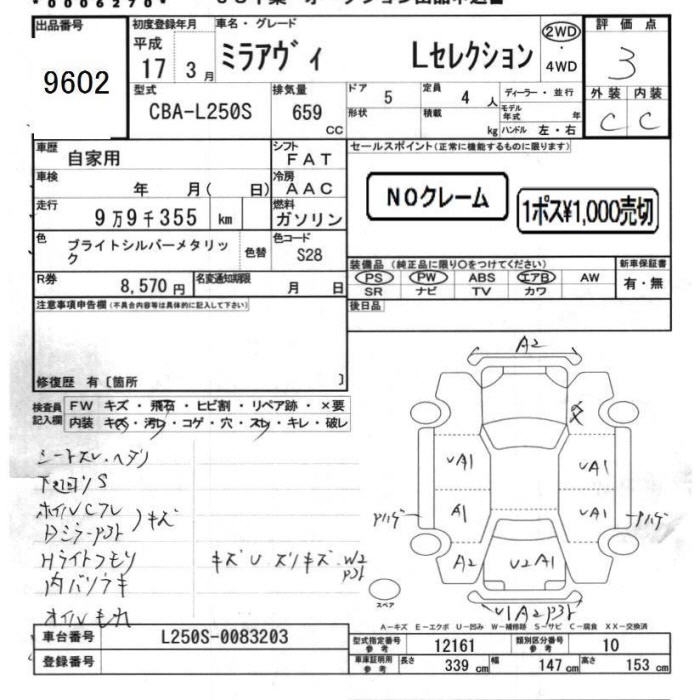 0006270
出品番号
9602
初度登録年月
平成
17 3月
車名・グレード
ミラアヴィ Lセレクション
2WD
・
4WD
評価点
3
外装 内装
C C
型式
CBA-L250S
排気量
659 CC
ドア
5
定員
4 人
ディーラー・並行
形状
積載
kg
モデル年式 年
ハンドル 左・右
車歴
自家用
シフト
FAT
車検
年 月( 日)
冷房
AAC
走行
9万9千355 km
燃料
ガソリン
色
ブライトシルバーメタリック
色替
色コード
S28
R券
8,570円
名変通知期限
月 日
セールスポイント(正常に機能するものに限ります)
NOクレーム
1ポス¥1,000売切
装備品(純正品に限り○をつけてください)
PS PW ABS エアB AW
SR ナビ TV カワ
新車保証書
有・無
後日品
注意事項申告欄(不具合内容等は具体的に記入して下さい)
修復歴 有〔箇所 〕
検査員記入欄
FW キズ・飛石・ヒビ割・リペア跡・×要
内装 キズ・汚レ・コゲ・穴・スレ・キレ・破レ
シートスレ・ヘタリ
下廻りS
ホイルCフレ
キズ
Hライトクモリ
内バリキズ
オイルもれ
キズU スリキズ W2
A2
UA1 UA1
A1 UA1
アハゲ アハゲ
A2 U2A1
スペア
A-キズ E-エクボ U-凹み W-補修跡 S-サビ C-腐食 XX-交換済
車台番号
L250S-0083203
登録番号
型式指定番号 参考
12161
類別区分番号 参考
10
車庫証明用 参考
長さ 339 cm
幅 147 cm
高さ 153 cm